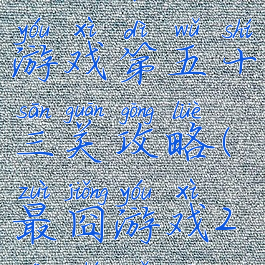 yóu xì dì wǔ shí
游戏第五十
sān guān gōng lüè
三关攻略(
zuì jiǒng yóu xì
最囧游戏2